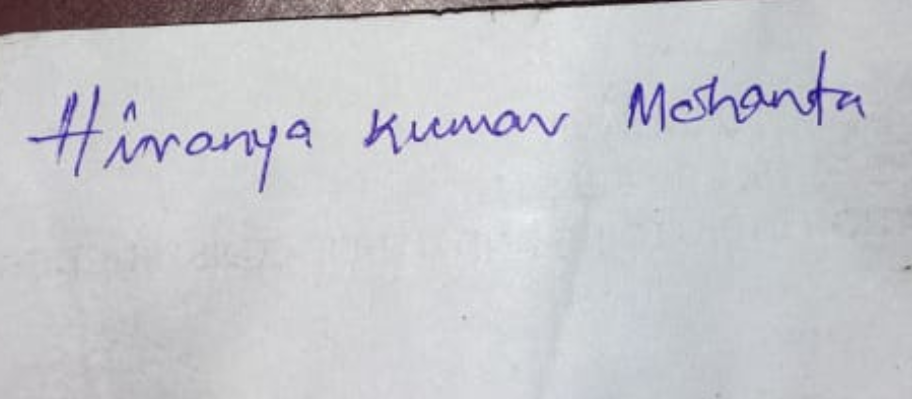 Hiranya Kumar Mohanta